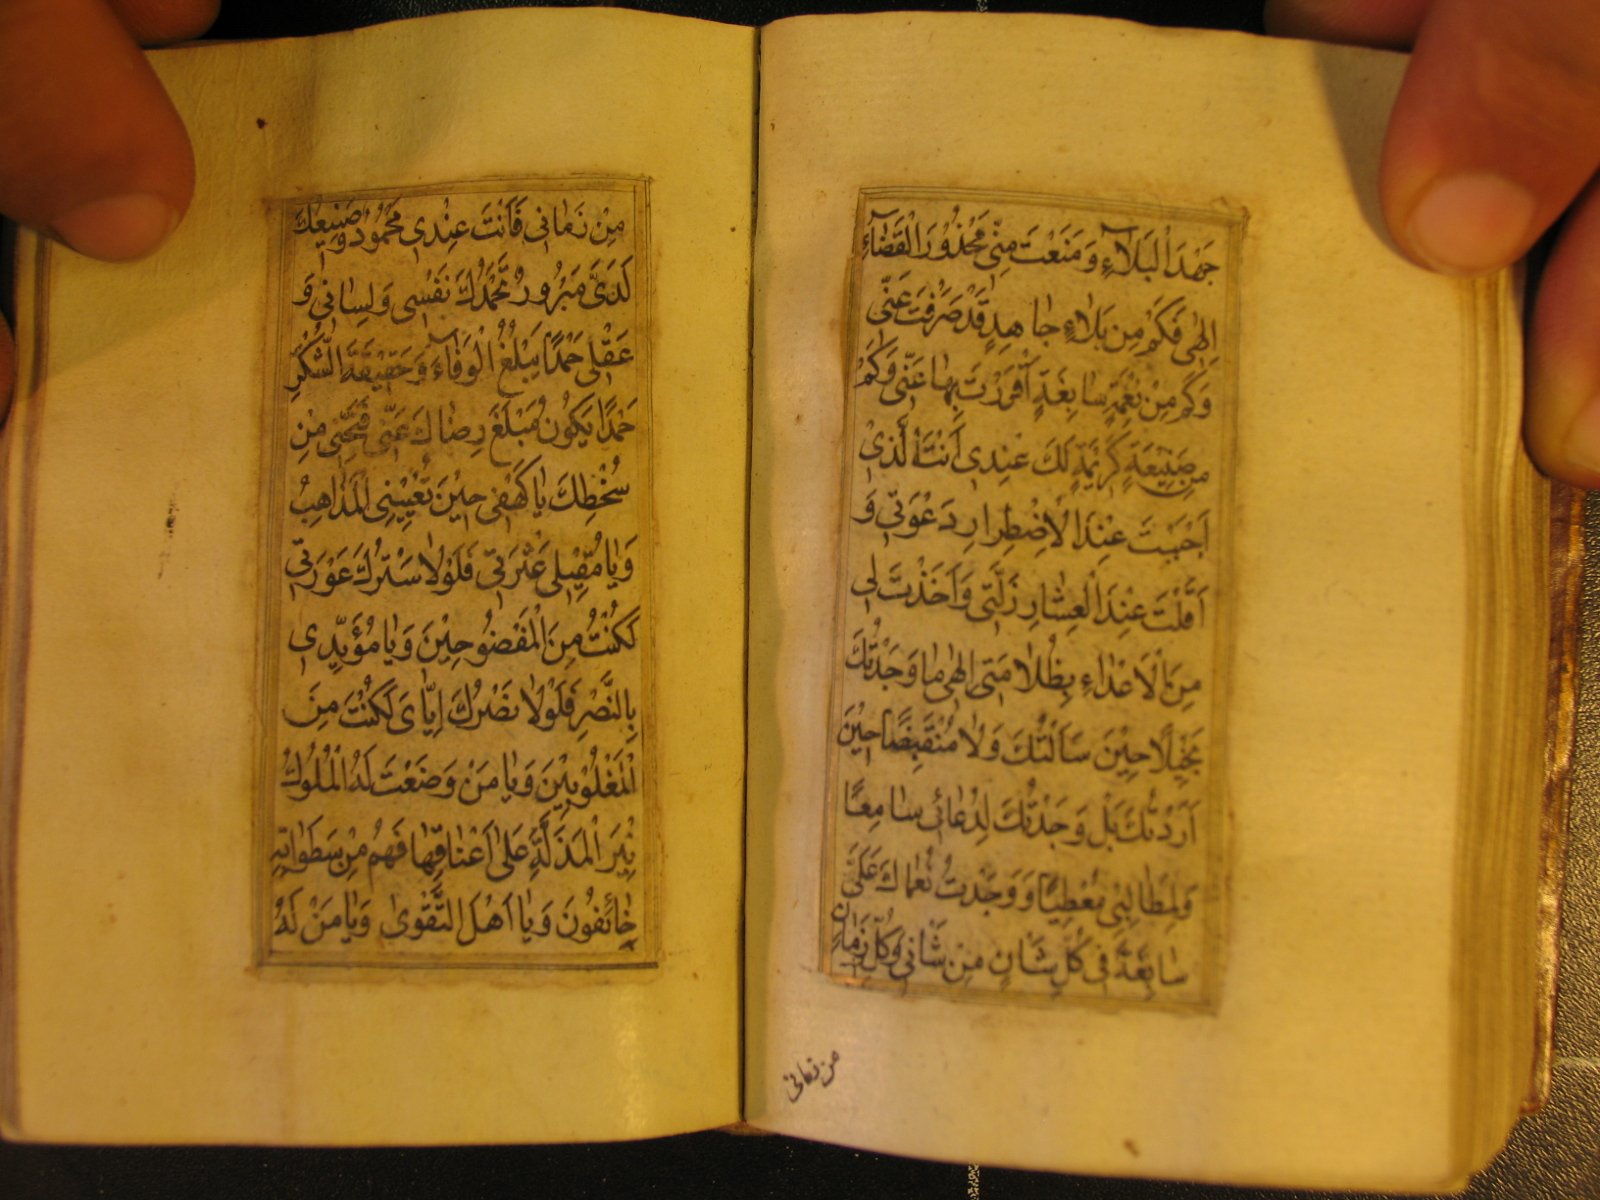 جَهْدَ الْبَلَاءِ وَمَنَعْتَ مِنِّي مَحْذُورَ الْقَضَاءِ
اِلٰهِي فَكَمْ مِنْ بَلَاءٍ جَاهِدٍ قَدْ صَرَفْتَ عَنِّي
وَكَمْ مِنْ نِعْمَةٍ سَابِغَةٍ اَقْرَرْتَ بِهَا عَيْنِي وَكَمْ
مِنْ صَنِيعَةٍ كَرِيمَةٍ لَكَ عِنْدِي اَنْتَ الَّذِي
اَجَبْتَ عِنْدَ الْاِضْطِرَارِ دَعْوَتِي وَ
اَقَلْتَ عِنْدَ الْعِثَارِ زَلَّتِي وَاَخَذْتَ لِي
مِنَ الْاَعْدَاءِ بِظُلَامَتِي اِلٰهِي مَا وَجَدْتُكَ
بَخِيلًا حِينَ سَاَلْتُكَ وَلَا مُنْقَبِضًا حِينَ
اَرَدْتُكَ بَلْ وَجَدْتُكَ لِدُعَائِي سَامِعًا
وَلِمَطَالِبِي مُعْطِيًا وَوَجَدْتُ نُعْمَاكَ عَلَيَّ
سَابِغَةً فِي كُلِّ شَانٍ مِنْ شَانِي وَكُلِّ زَمَانٍ
من زمانی
مِنْ زَمَانِي فَاَنْتَ عِنْدِي مَحْمُودٌ وَصَنِيعُكَ
لَدَيَّ مَبْرُورٌ تَحْمَدُكَ نَفْسِي وَلِسَانِي وَ
عَقْلِي حَمْدًا يَبْلُغُ الْوَفَاءَ وَحَقِيقَةَ الشُّكْرِ
حَمْدًا يَكُونُ مَبْلَغَ رِضَاكَ عَنِّي فَنَجِّنِي مِنْ
سُخْطِكَ يَا كَهْفِي حِينَ تُعْيِينِي الْمَذَاهِبُ
وَيَا مُقِيلِي عَثْرَتِي فَلَوْلَا سَتْرُكَ عَوْرَتِي
لَكُنْتُ مِنَ الْمَفْضُوحِينَ وَيَا مُؤَيِّدِي
بِالنَّصْرِ فَلَوْلَا نَصْرُكَ اِيَّايَ لَكُنْتُ مِنَ
الْمَغْلُوبِينَ وَيَا مَنْ وَضَعَتْ لَهُ الْمُلُوكُ
نِيرَ الْمَذَلَّةِ عَلَى اَعْنَاقِهَا فَهُمْ مِنْ سَطَوَاتِهِ
خَائِفُونَ وَيَا اَهْلَ التَّقْوَى وَيَا مَنْ لَهُ